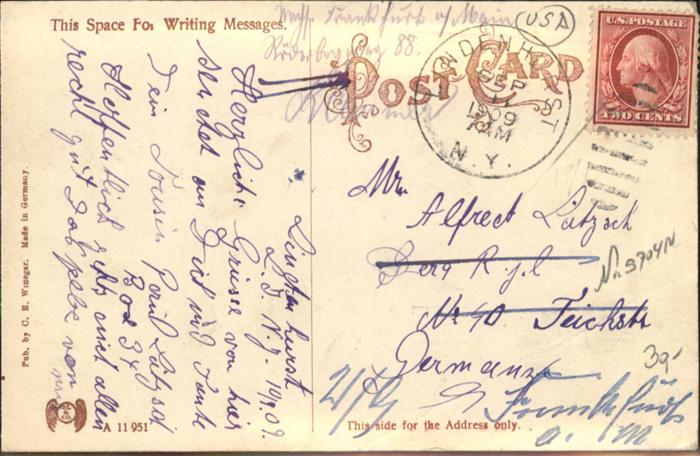 This Space For Writing Messages.
Frankfurt a/ Main
88.
USA
POST CARD
LINDENHURST
SEP
11
1909
7 AM
N.Y.
U.S. POSTAGE
TWO CENTS
Lindenhurst
L.I. N.Y. 10/9.09.
Herzliche Grüsse von hier
sendet an Dich und Tante
Dein Cousin Paul Lätzsch
Box 34
Hoffentlich geht's euch allen
recht gut dasselbe von
mir
Mr.
Alfred Lätzsch
No 40 Teichstr
Germany
Frankfurt
a. M
Nr. 3704N
39-
Pub. by C. E. Winegar. Made in Germany.
A 11951
This side for the Address only.